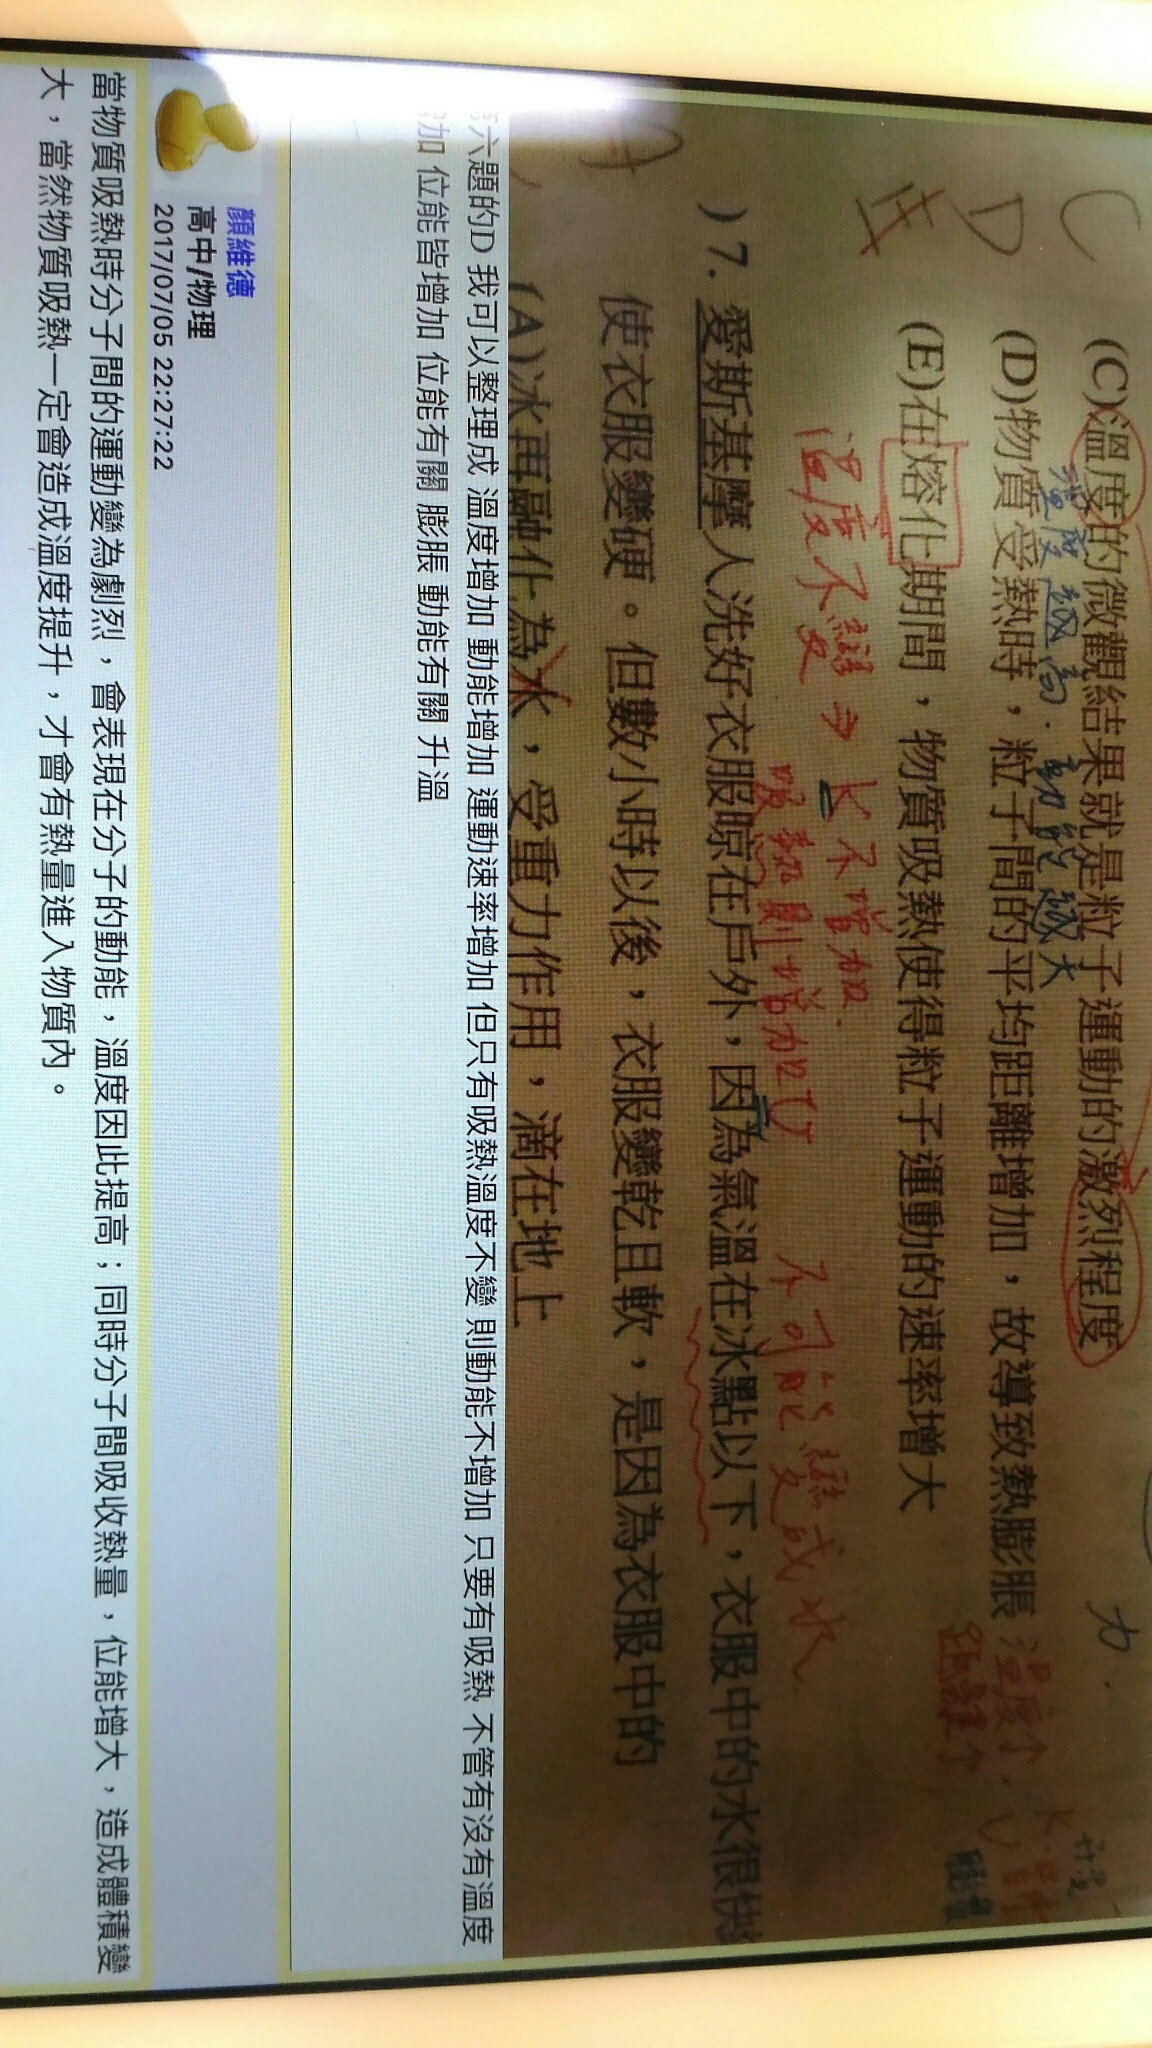 C (C)溫度的微觀結果就是粒子運動的激烈程度
溫度越高．動能越大
D (D)物質受熱時，粒子間的平均距離增加，故導致熱膨脹 溫度↑．
距離↑
膨脹
(E)在熔化期間，物質吸熱使得粒子運動的速率增大
溫度不變→K不增加．
吸熱則增加U 不可能變成水
)7. 愛斯基摩人洗好衣服晾在戶外，因為氣溫在冰點以下，衣服中的水很快
使衣服變硬。但數小時以後，衣服變乾且軟，是因為衣服中的
(A)冰再融化為水，受重力作用，滴在地上
六題的D 我可以整理成 溫度增加 動能增加 運動速率增加 但只有吸熱溫度不變 則動能不增加 只要有吸熱 不管有沒有溫度
加 位能皆增加 位能有關 膨脹 動能有關 升溫
顏維德
高中/物理
2017/07/05 22:27:22
當物質吸熱時分子間的運動變為劇烈，會表現在分子的動能，溫度因此提高；同時分子間吸收熱量，位能增大，造成體積變
大，當然物質吸熱一定會造成溫度提升，才會有熱量進入物質內。